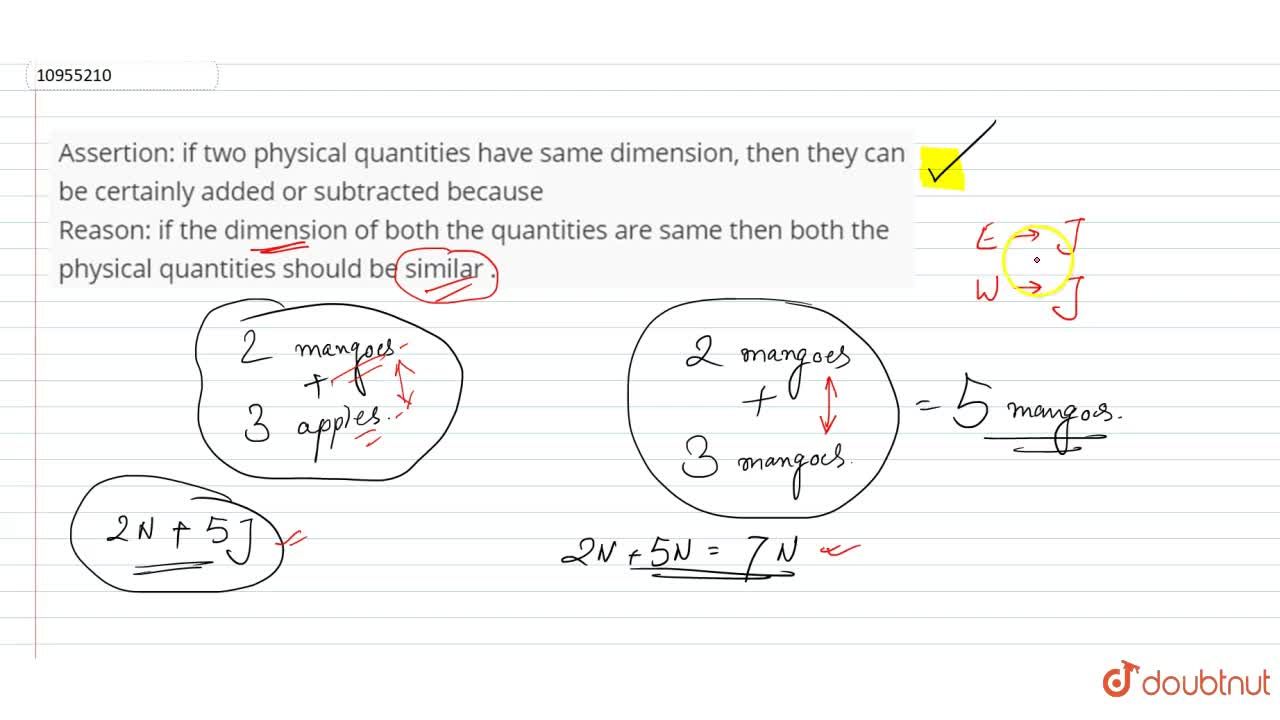 10955210
Assertion: if two physical quantities have same dimension, then they can
be certainly added or subtracted because
Reason: if the dimension of both the quantities are same then both the
physical quantities should be similar .
E → J
W → J
2 mangoes
+
3 apples
2 mangoes
+
3 mangoes.
= 5 mangoes.
2N + 5J
2N + 5N = 7N
doubtnut